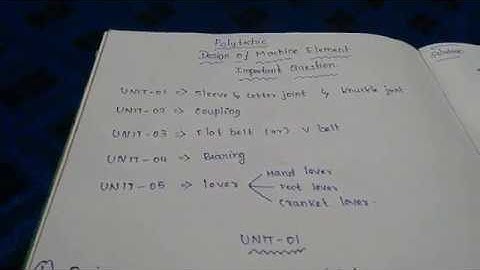 Polytechnic
Design of Machine Element
Important Question
UNIT-01 => Sleeve & cotter joint & knuckle joint
UNIT-02 => Coupling
UNIT-03 => Flat belt (or) V belt
UNIT-04 => Bearing
UNIT-05 => lever
Hand lever
Foot lever
Cranket lever
UNIT-01